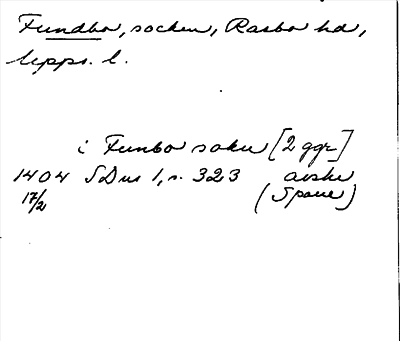 Fundbo, socken, Rasbo hd,
Upps. l.
i Funbo sokn [2 ggr]
1404 SDns 1, s. 323 avskr
17/2 (Spaue)